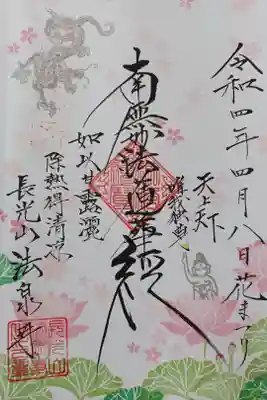 令和四年四月八日花まつり
天上天下
唯我独尊
南無妙法蓮華経
如以甘露灑
除熱得清涼
長光山法泉寺